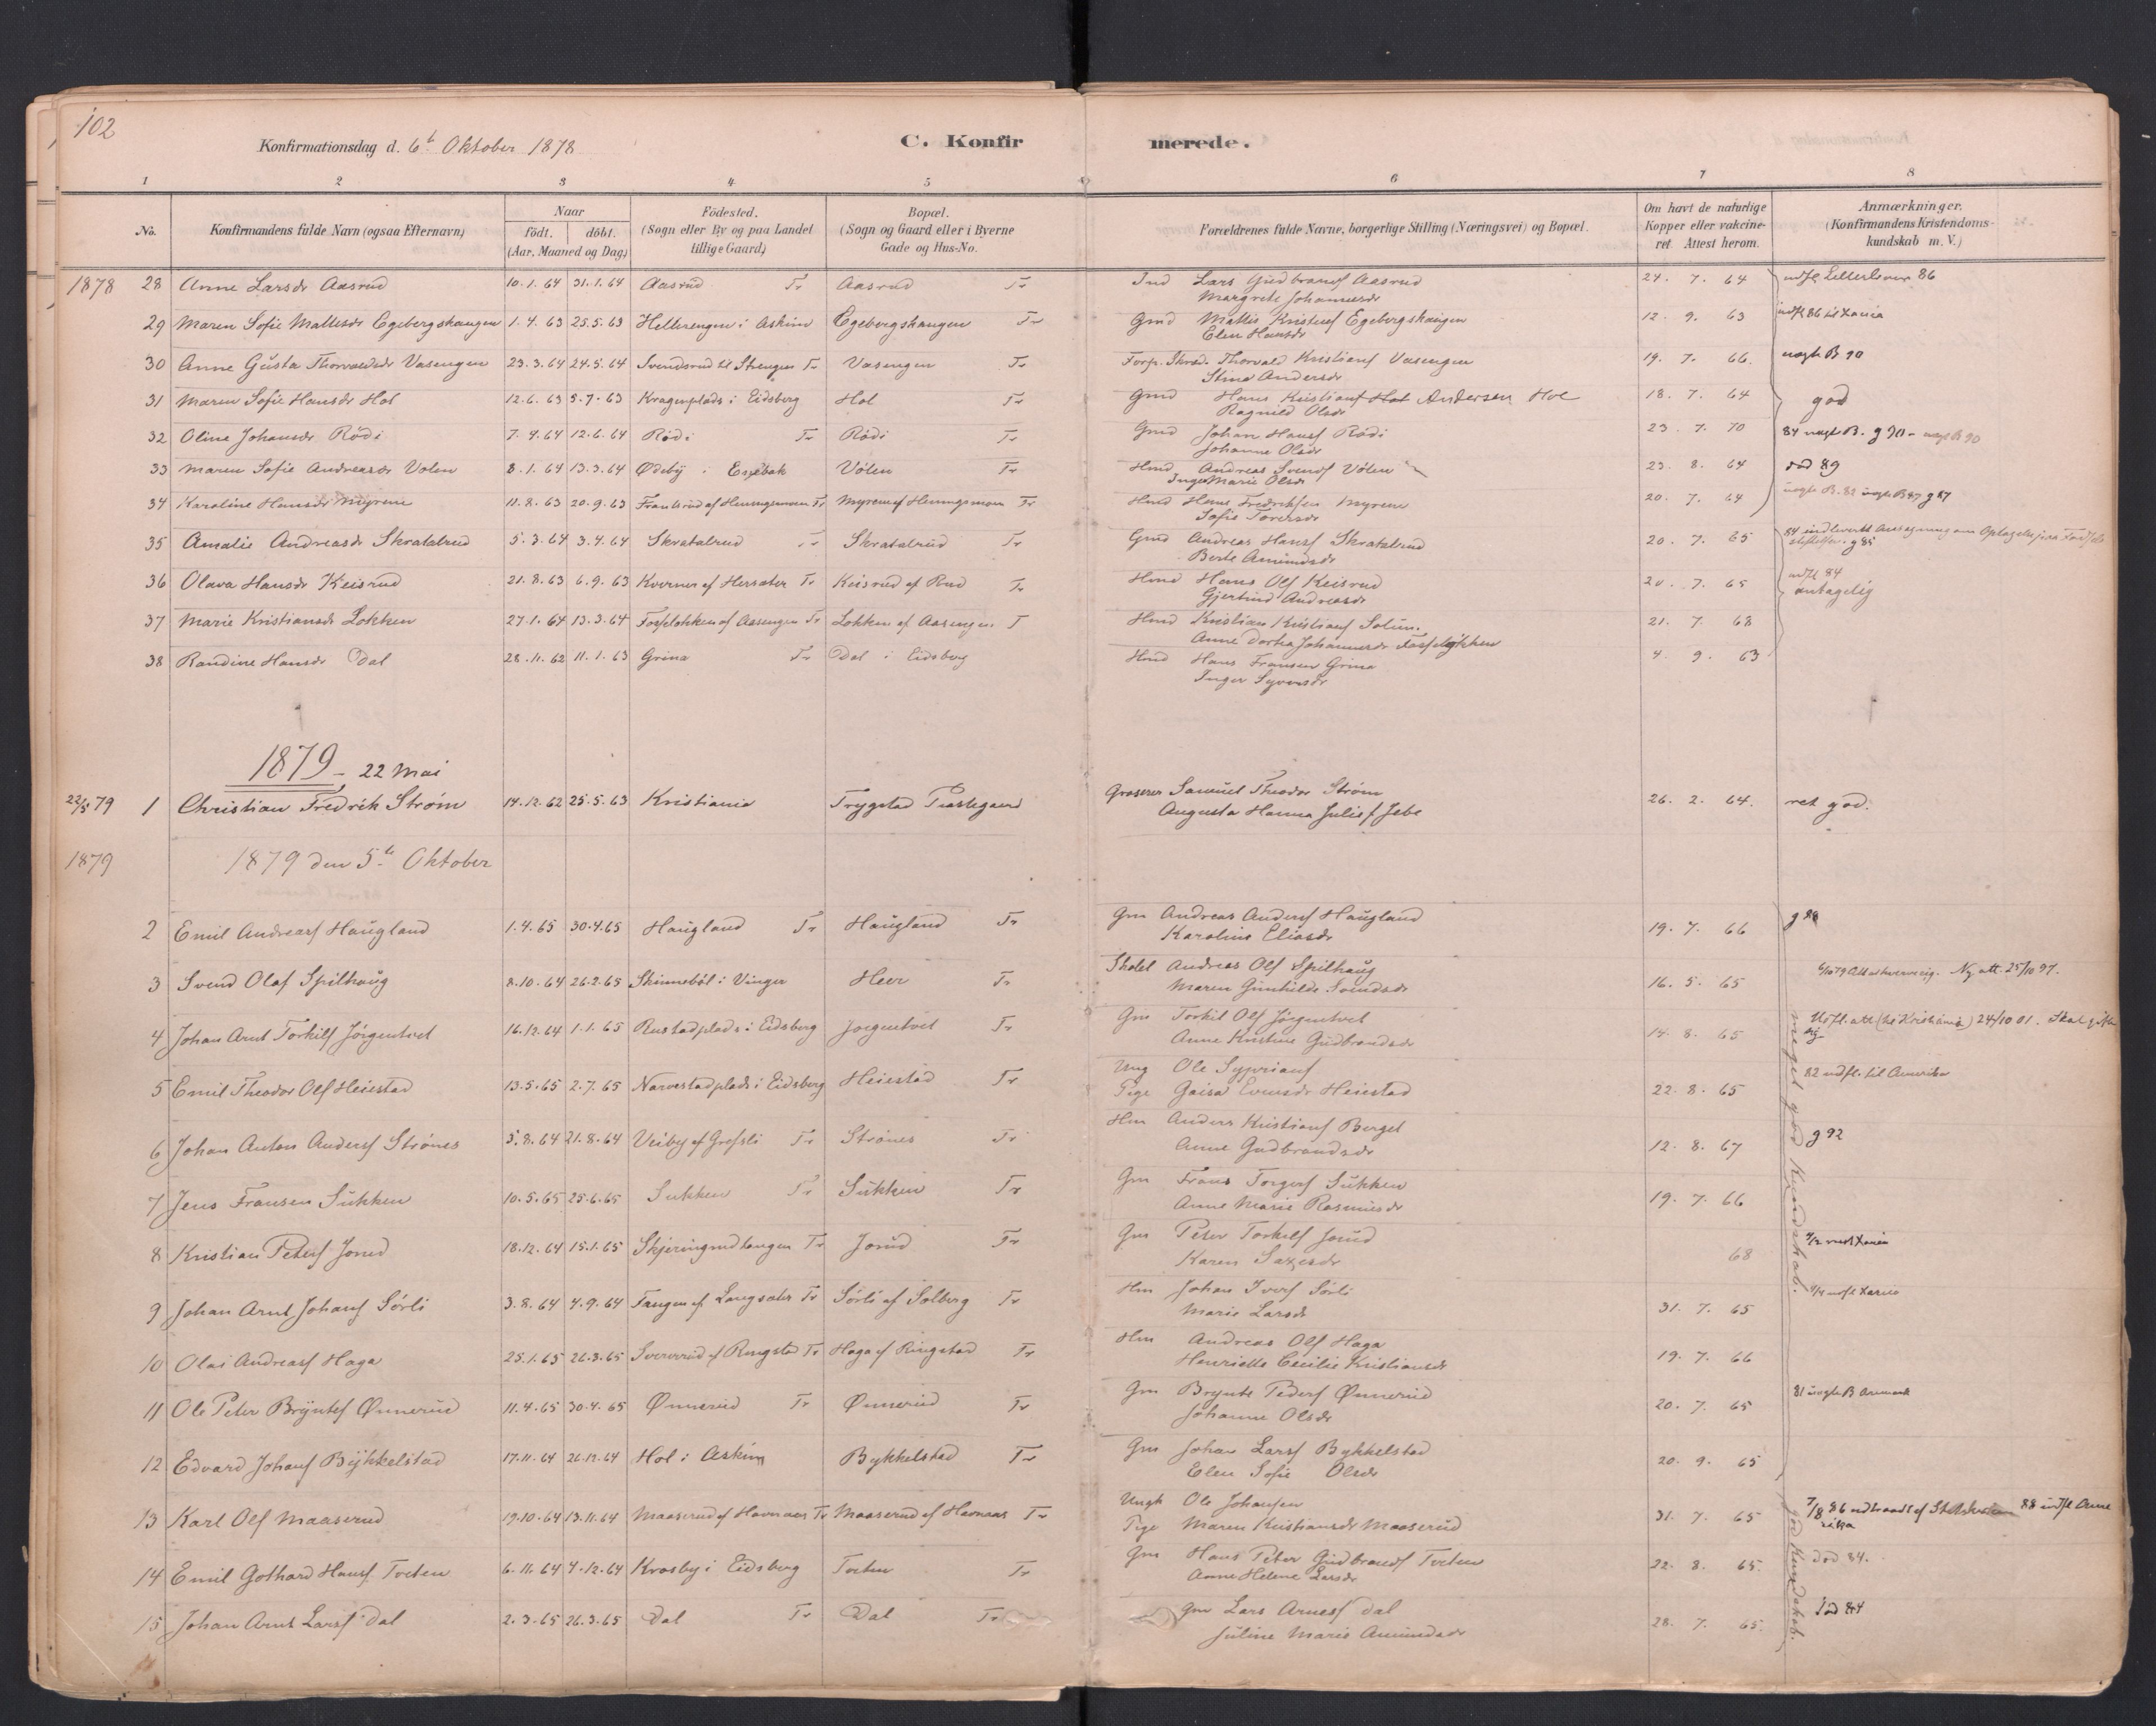 102
Konfirmationsdag d. 6te Oktober 1878
C. Konfirmerede.
1 2 3 4 5 6 7 8
No.
Konfirmandens fulde Navn (ogsaa Efternavn)
Naar
födt. döbt.
(Aar, Maaned og Dag.)
Födested.
(Sogn eller By og paa Landet
tillige Gaard)
Bopæl.
(Sogn og Gaard eller i Byerne
Gade og Hus-No.
Forældrenes fulde Navne, borgerlige Stilling (Næringsvei) og Bopæl.
Om havt de naturlige
Kopper eller vakcine-
ret. Attest herom.
Anmærkninger.
(Konfirmandens Kristendoms-
kundskab m. V.)
1878 28 Anne Larsdr Aasrud 10.1.64 31.1.64 Aasrud Tr Aasrud Tr Ind Lars Gudbrands Aasrud 24. 7. 64 86
Margrete Johannesdr
29 Maren Sofie Mattisdr Egebergshaugen 1.4.63 25.5.63 Hellerengen i Askim Egebergshaugen Tr Gmd Mattis Kristens Egebergshaugen 12. 9. 63 udfl 86 til Xania
Elen Hansdr
30 Anne Gusta Thorvaldsdr Vasengen 23.3.64 24.5.64 Svendsrud til Strengen Tr Vasengen Tr Forp. Skred. Thorvald Kristians Vasengen 19. 7. 66. uægte B 90
Stina Andersdr
31 Maren Sofie Hansdr Hol 12.6.63 5.7.63 Kragerplads i Eidsberg Hol Tr Gmd Hans Kristians Hol Andersen Hol 18. 7. 64 god
Ragnild Olsdr
32 Oline Johansdr Rödi 7.4.64 12.6.64 Rödi Tr Rödi Tr Gmd Johan Hans Rödi 23. 7. 70 84 uægt B. g 90 - uægt B 90
Johanne Olsdr
33 Maren Sofie Andreasdr Volen 8.1.64 13.3.64 Ødeby i Enebak Völen Tr Hmd Andreas Svends Völen 23. 8. 64 död 89
Inger Marie Olsdr
34 Karoline Hansdr Myrene 11.8.63 20.9.63 Frantsrud af Henningsmoen Tr Myrene af Henningsmoen Tr Hmd Hans Fredriksen Myrene 20. 7. 64 uægte B. 82 uægte B 87 g 87
Sofie Toresdr
35 Amalie Andreasdr Skratalrud 5.3.64 3.4.64 Skratalrud Tr Skratalrud Tr Gmd Andreas Hans Skratalrud 20. 7. 65 g 85
Berte Amundsdr
36 Olava Hansdr Keisrud 21.8.63 6.9.63 Kverner af Hersæter Tr Keisrud af Rud Tr Hmd Hans Ols Keisrud 20. 7. 65 udfl 84
Gjertrud Andreasdr antagelig
37 Marie Kristiansdr Løkken 27.1.64 13.3.64 Fosseløkken af Aasengen Tr Løkken af Aasengen T Hmd Kristian Kristians Solum. 21. 7. 68
Anne Dortea Johannesdr Fosseløkken
38 Randine Hansdr Dal 28.11.62 11.1.63 Grina Tr Dal i Eidsberg Hmd Hans Fransen Grina 4. 9. 63
Inger Syversdr
1879 - 22 Mai
22/5 79 1 Christian Fredrik Strøm 14.12.62 25.5.63 Kristiania Trygstad Prestegaard Groserer Samuel Theodor Strøm 26. 2. 64. ret god.
Augusta Hanna Julie f Jebe
1879 1879 den 5te Oktober
2 Emil Andreas Haugland 1.4.65 30.4.65 Haugland Tr Haugland Tr Gm Andreas Anders Haugland 19. 7. 66
Karoline Eliasdr
3 Svend Olaf Spilhaug 8.10.64 26.2.65 Skinnebøl i Vinger Heer Tr Skolel Andreas Ols Spilhaug 16. 5. 65 Ny att. 25/10 97.
Maren Gunhilde Svendsdr
4 Johan Arnt Torkils Jörgentvet 16.12.64 1.1.65 Rustadplads i Eidsberg Jorgentvet Tr Gm Torkil Ols Jörgentvet 14. 8. 65 Udfl. att (til Kristiania) 24/10 01. Skal gifte
Anne Kristine Gudbrandsdr sig
5 Emil Theodor Ols Heiestad 13.5.65 2.7.65 Narvestadplads i Eidsberg Heiestad Tr Ung Ole Syprians 22. 8. 65 82 udfl. til Amerika
Pige Gaisa Evensdr Heiestad
6 Johan Anton Anders Strönes 5.8.64 21.8.64 Veiby af Grefsli Tr Strönes Tr Hm Anders Kristians Berget 12. 8. 67 g 92
Anne Gudbrandsdr
7 Jens Fransen Sukken 10.5.65 25.6.65 Sukken Tr Sukken Tr Gm Frans Torgers Sukken 19. 7. 66
Anne Marie Rasmusdr
8 Kristian Peters Jorud 18.12.64 15.1.65 Skjeringrudhaugen Tr Jorud Tr Gm Peter Torkils Jorud 68
Karen Saxesdr
9 Johan Arnt Johans Sörli 3.8.64 4.9.64 Tangen af Langsæter Tr Sörli af Solberg Tr Hm Johan Ivers Sörli 31. 7. 65
Marie Larsdr
10 Olai Andreas Haga 25.1.65 26.3.65 Svererud af Ringstad Tr Haga af Ringstad Tr Hm Andreas Ols Haga 19. 7. 66
Henriette Cecilie Kristiansdr
11 Ole Peter Bryntes Ønnerud 11.4.65 30.4.65 Ønnerud Tr Ønnerud Tr Gm Brynte Peders Ønnerud 20. 7. 65 81 uægte B Aremark
Johanne Olsdr
12 Edvard Johans Bykkelstad 17.11.64 26.12.64 Hol i Askim Bykkelstad Tr Gm Johan Lars Bykkelstad 20. 9. 65
Elen Sofie Olsdr
meget god Kundskab.
13 Karl Ols Maaserud 19.10.64 13.11.64 Maaserud af Havnaas Tr Maaserud af Havnaas Tr Ungk Ole Johansen 31. 7. 65 88 udfl Ame
Pige Maren Kristiansdr Maaserud rika
14 Emil Gothard Hans. Tveten 6.11.64 4.12.64 Krosby i Eidsberg Tveten Tr Gm Hans Peter Gudbrands Tveten 22. 8. 65. død 84.
Anne Helene Larsdr
15 Johan Arnt Lars Dal 2.3.65 26.3.65 Dal Tr Dal Tr Gm Lars Arnes Dal 28. 7. 65. död 84
Juline Marie Amundsdr
god Kundskab.